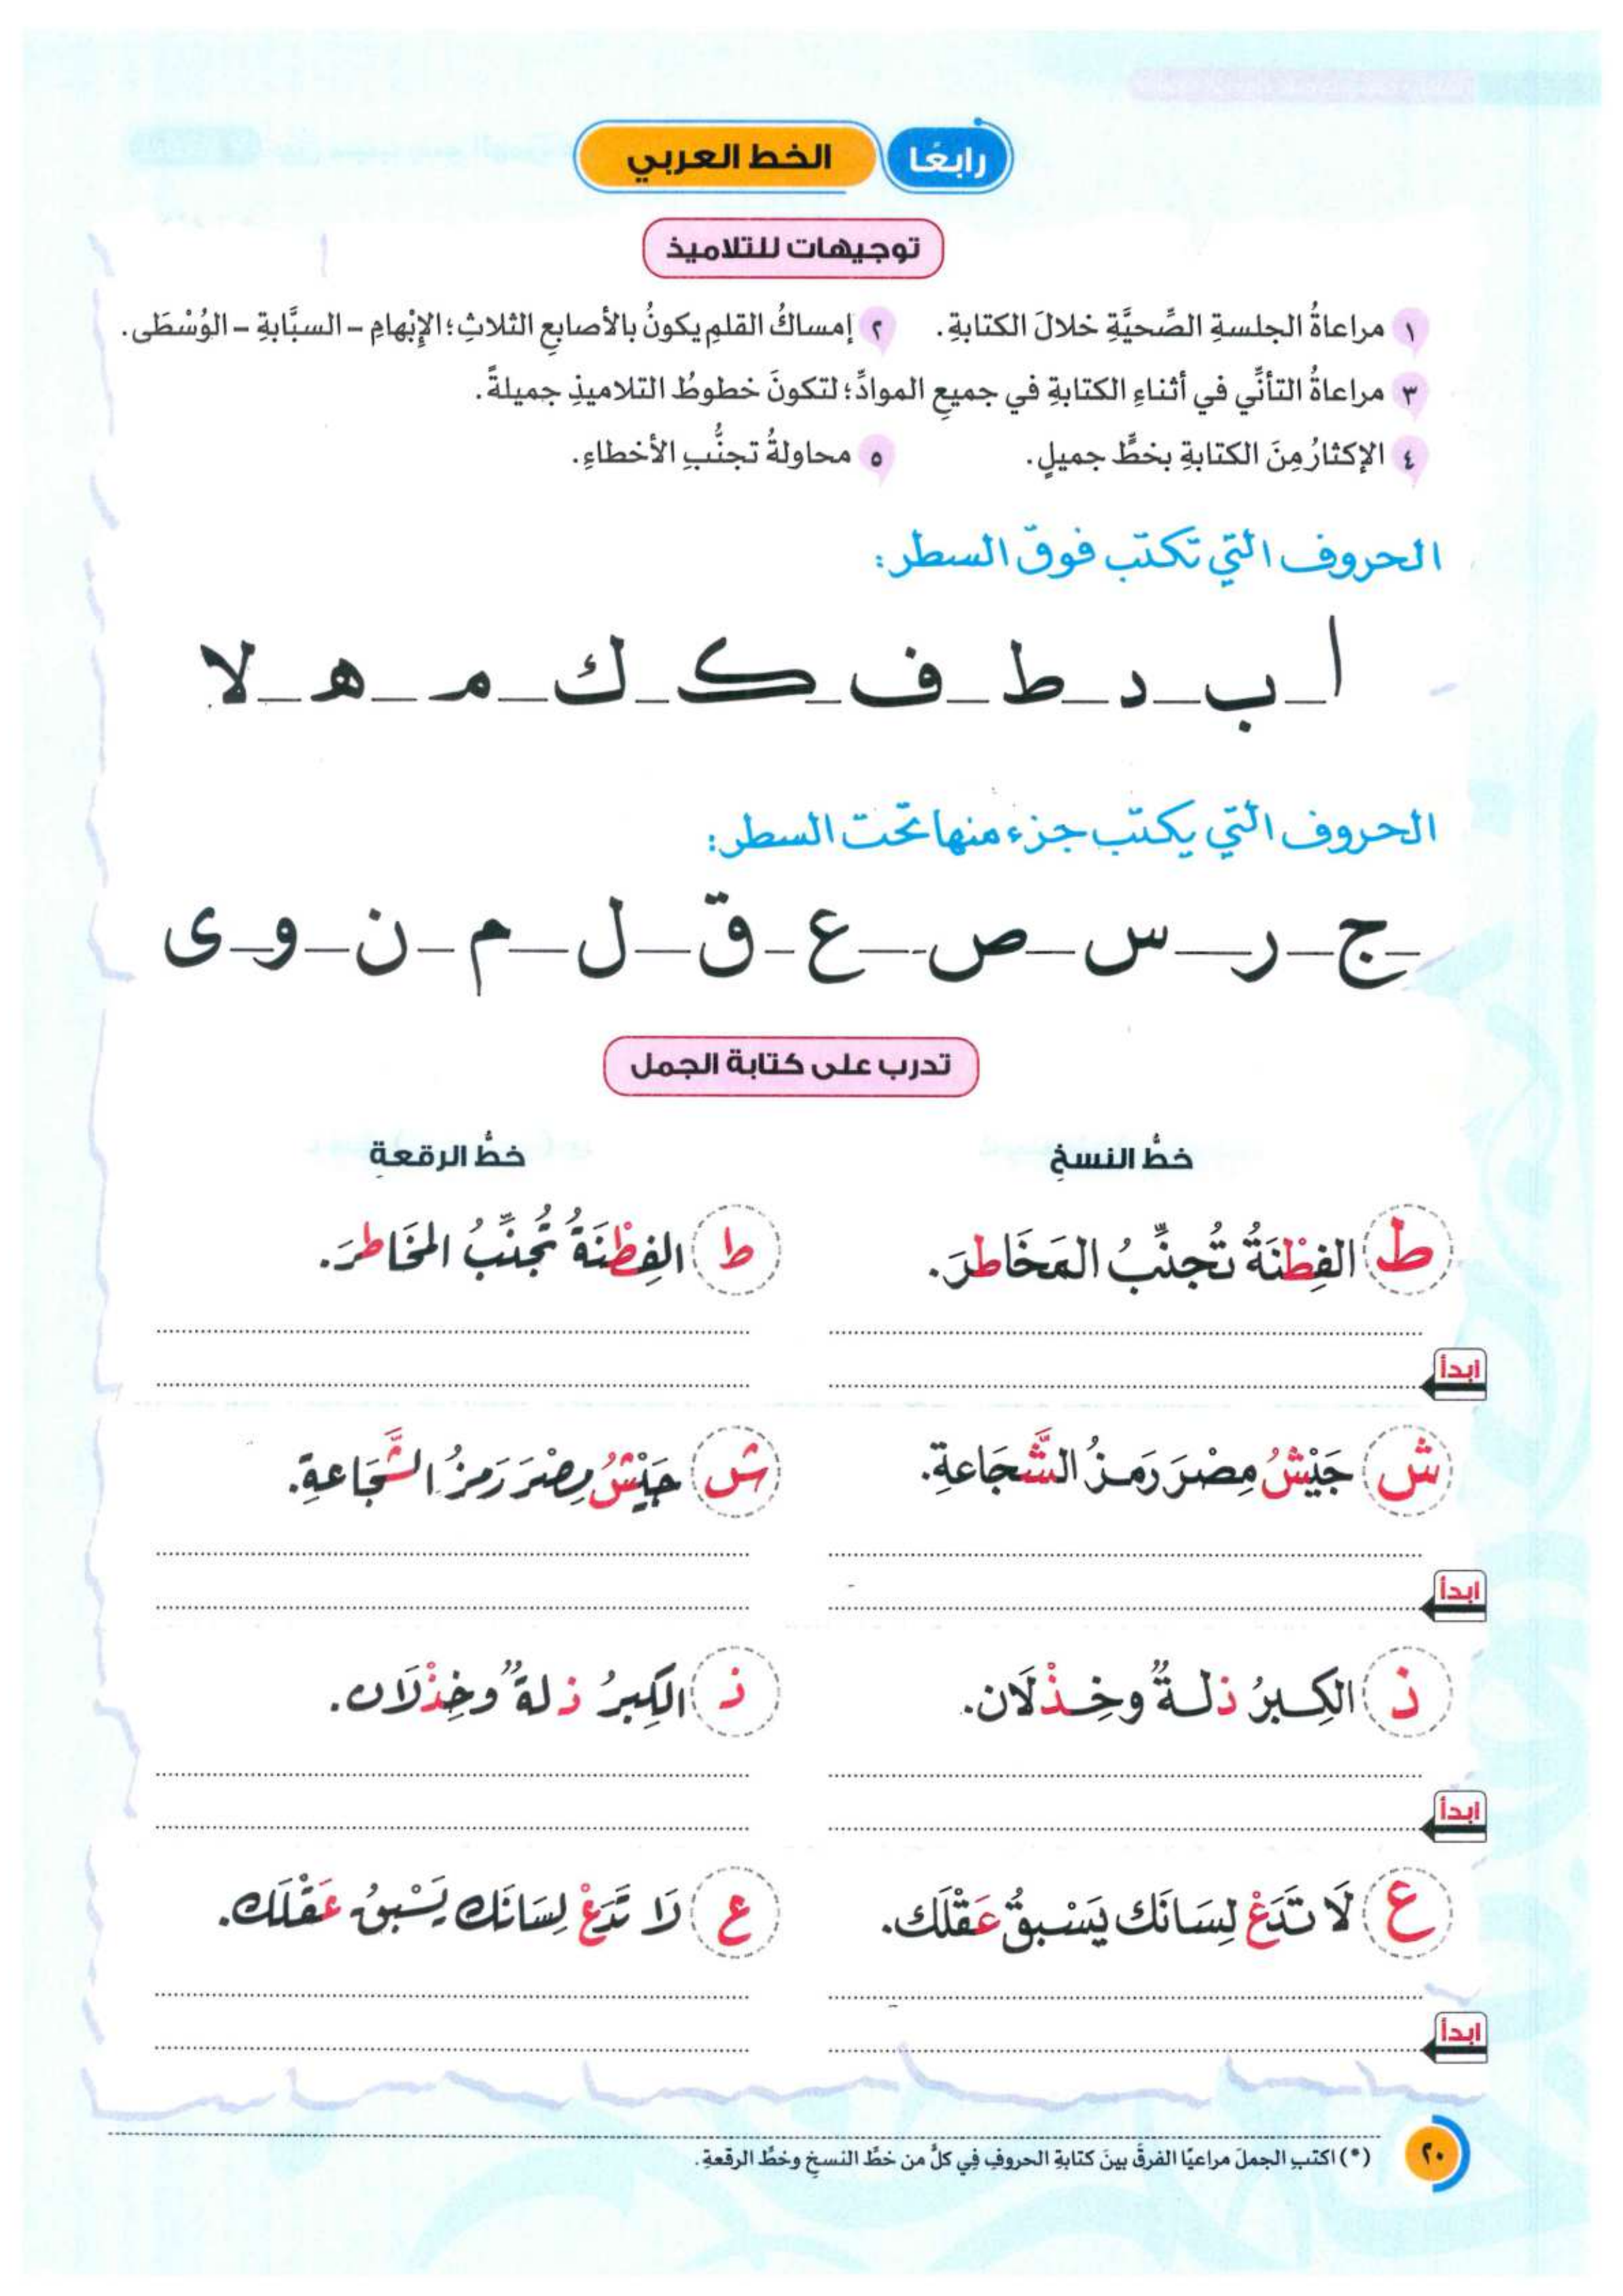 رابعًا الخط العربي
توجيهات للتلاميذ
١ مراعاةُ الجلسةِ الصِّحيَّةِ خلالَ الكتابةِ. ٢ إمساكُ القلمِ يكونُ بالأصابعِ الثلاثِ؛ الإِبْهامِ – السبَّابةِ – الوُسْطَى.
٣ مراعاةُ التأنِّي في أثناءِ الكتابةِ في جميعِ الموادِّ؛ لتكونَ خطوطُ التلاميذِ جميلةً.
٤ الإكثارُ مِنَ الكتابةِ بخطٍّ جميلٍ. ٥ محاولةُ تجنُّبِ الأخطاءِ.
الحروف التي تكتب فوق السطر:
ا ب د ط ف ک ك م ه لا
الحروف التي يكتب جزء منها تحت السطر:
ج ر س ص ع ق ل م ن و ى
تدرب على كتابة الجمل
خطُّ النسخِ خطُّ الرقعةِ
ط الفِطْنَةُ تُجنِّبُ المَخَاطرَ. ط الفِطْنَةُ تُجنِّبُ المَخَاطرَ.
ابدأ
ش جَيْشُ مِصْرَ رَمزُ الشَّجَاعةِ. ش جَيْشُ مِصْرَ رَمزُ الشَّجَاعةِ.
ابدأ
ذ الكِبرُ ذلةٌ وخِذْلَان. ذ الكِبرُ ذلةٌ وخِذْلَان.
ابدأ
ع لَا تَدَعْ لِسَانَك يَسْبِقُ عَقْلَك. ع لَا تَدَعْ لِسَانَك يَسْبِقُ عَقْلَك.
ابدأ
(*) اكتبِ الجملَ مراعيًا الفرقَ بينَ كتابةِ الحروفِ فِي كلٍّ من خطِّ النسخِ وخطِّ الرقعةِ.
٢٠